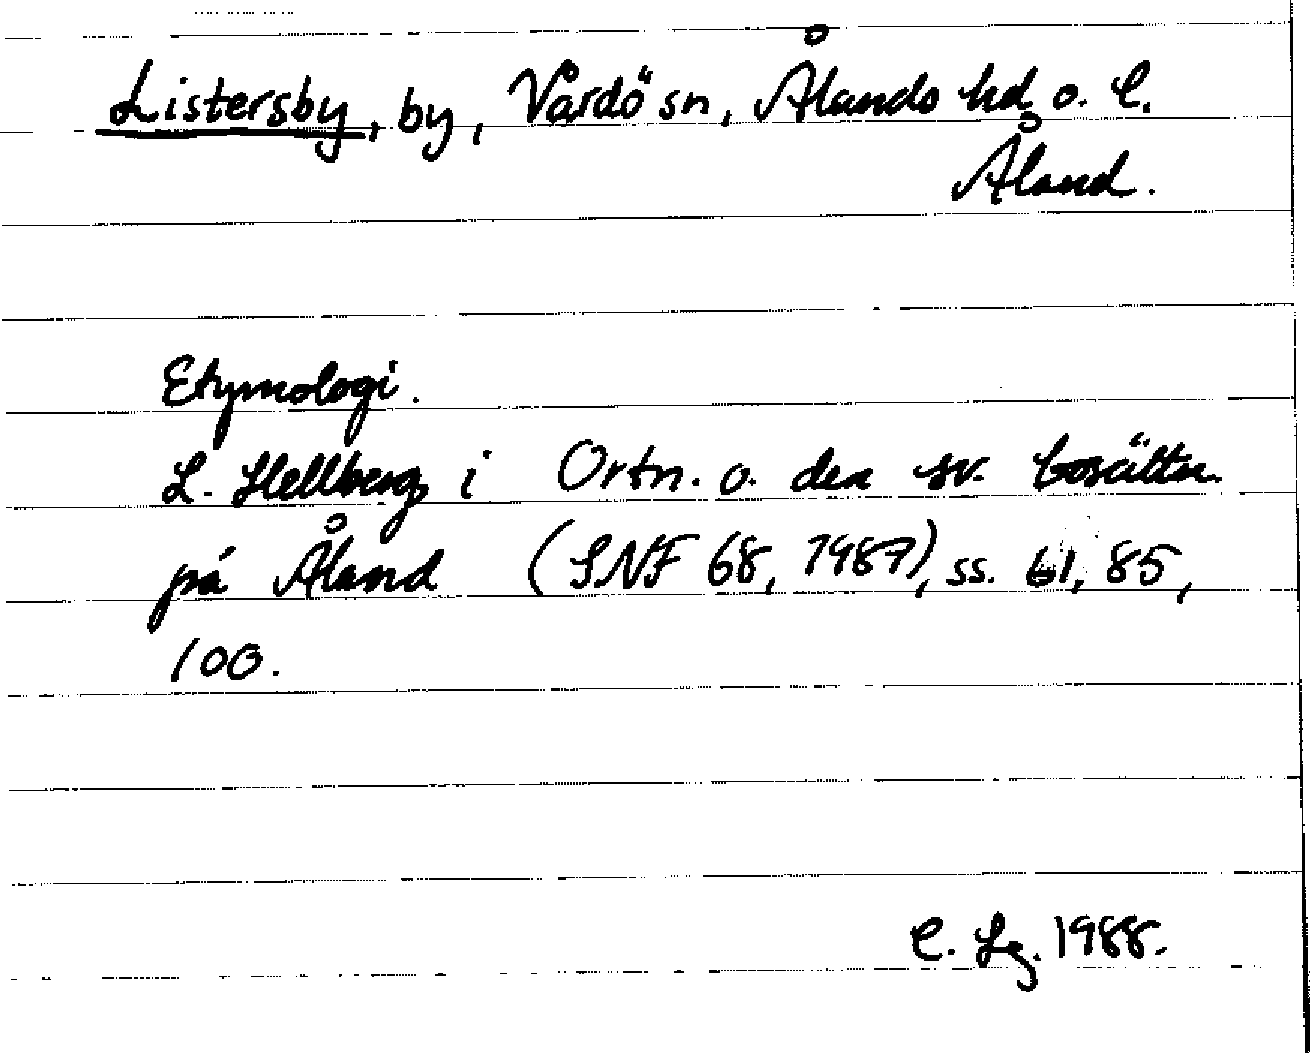 Listersby, by, Vårdö sn, Ålands hd o. l.
Åland.
Etymologi.
L. Hellberg i Ortn. o. den sv. bosättn.
på Åland (SNF 68, 1987), ss. 61, 85,
100.
C. Lg. 1988.